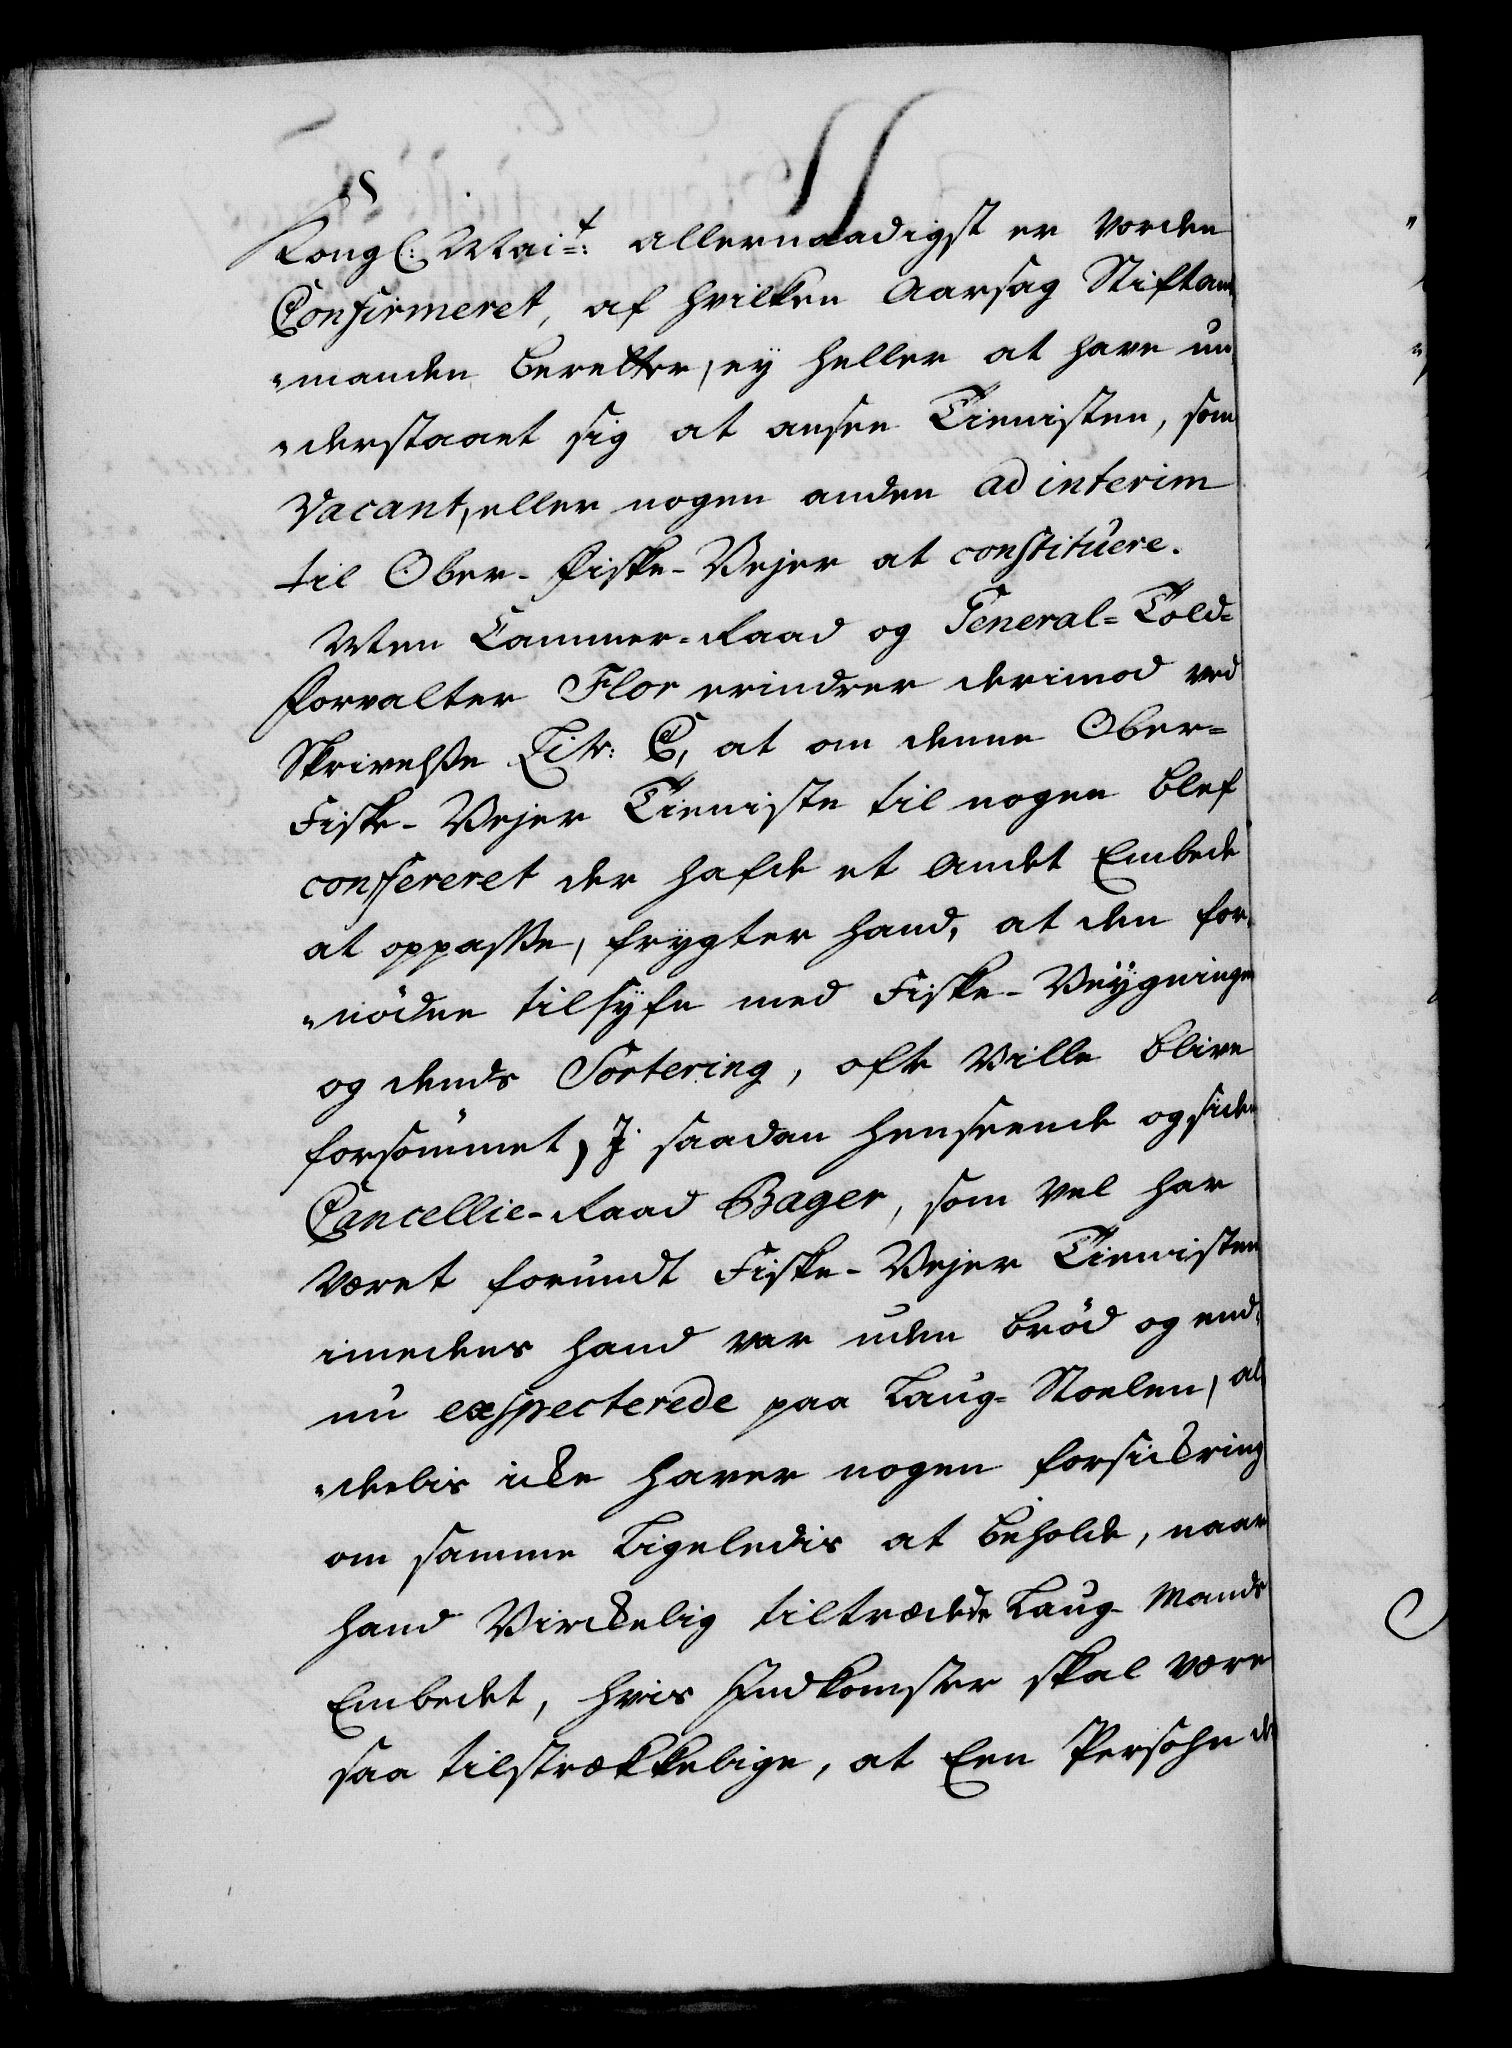 Kongl: Mai:t allernaadigst er vorden
Confirmeret, af hvilken Aarsag Stiftamt„
„manden beretter, ey heller at have un„
„derstaaet sig at ansee Tienisten, som
vacant, eller nogen anden ad interim
til Ober-Fiske-Vejer at constituere.
Men Cammer-Raad og General-Told-
Forvalter Flor erindrer derimod ved
Skrivelsse Litr: C, at om denne Ober-
Fiske-Vejer Tieniste til nogen blef
confereret der hafde et andet Embede
at oppasse, frygter hand, at den for„
„nöden tilsyfn med Fiske-Veÿgningen
og dends Sortering, ofte ville blive
forsömmet, J saadan henseende og siden
Cancellie-Raad Bager, som vel har
været forundt Fiske-Vejer Tienisten
imedens hand var uden bröd og end„
nu exspecterede paa Laug-Stoelen, al„
„deelis icke haver nogen forsickring
om samme ligeledis at beholde, naar
hand virckelig tiltrædede Laug-Mands
Embedet, hvis Indkomster skal være
saa tilstrækkelige, at Een Persohn de